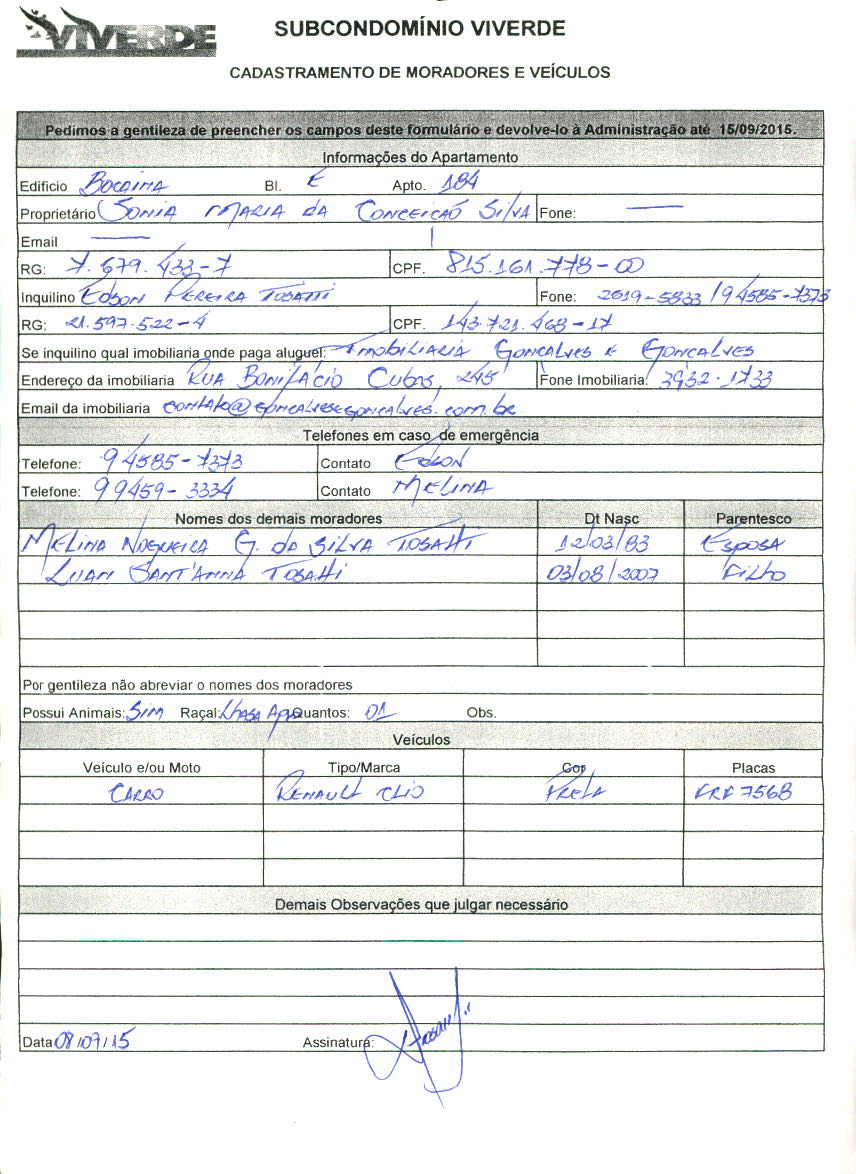 VIVERDE
SUBCONDOMÍNIO VIVERDE
CADASTRAMENTO DE MORADORES E VEÍCULOS
Pedimos a gentileza de preencher os campos deste formulário e devolve-lo à Administração até 15/09/2015.
Informações do Apartamento
Edificio BOCAINA Bl. E Apto. 184
Proprietário SONIA MARIA DA CONCEIÇÃO SILVA Fone: —
Email —
RG: 7.679.433-7 CPF. 815.161.778-00
Inquilino EDSON PEREIRA TOSATTI Fone: 2019-5833 / 94585-7373
RG: 21.597.522-4 CPF. 143.721.468-17
Se inquilino qual imobiliaria onde paga aluguel: IMOBILIARIA GONCALVES E GONCALVES
Endereço da imobiliaria RUA BONIFÁCIO CUBAS, 245 Fone Imobiliaria: 3932.1733
Email da imobiliaria contato@goncalvesegoncalves.com.br
Telefones em caso de emergência
Telefone: 94585-7373 Contato EDSON
Telefone: 99459-3334 Contato MELINA
Nomes dos demais moradores Dt Nasc Parentesco
MELINA NOGUEIRA G. DA SILVA TOSATTI 12/03/83 ESPOSA
LUAN SANT'ANNA TOSATTI 03/08/2007 FILHO
Por gentileza não abreviar o nomes dos moradores
Possui Animais: SIM Raça: LHASA APSO Quantos: 01 Obs.
Veículos
Veículo e/ou Moto Tipo/Marca Cor Placas
CARRO RENAULT CLIO PRETA FRF 7568
Demais Observações que julgar necessário
Data 08/09/15 Assinatura: